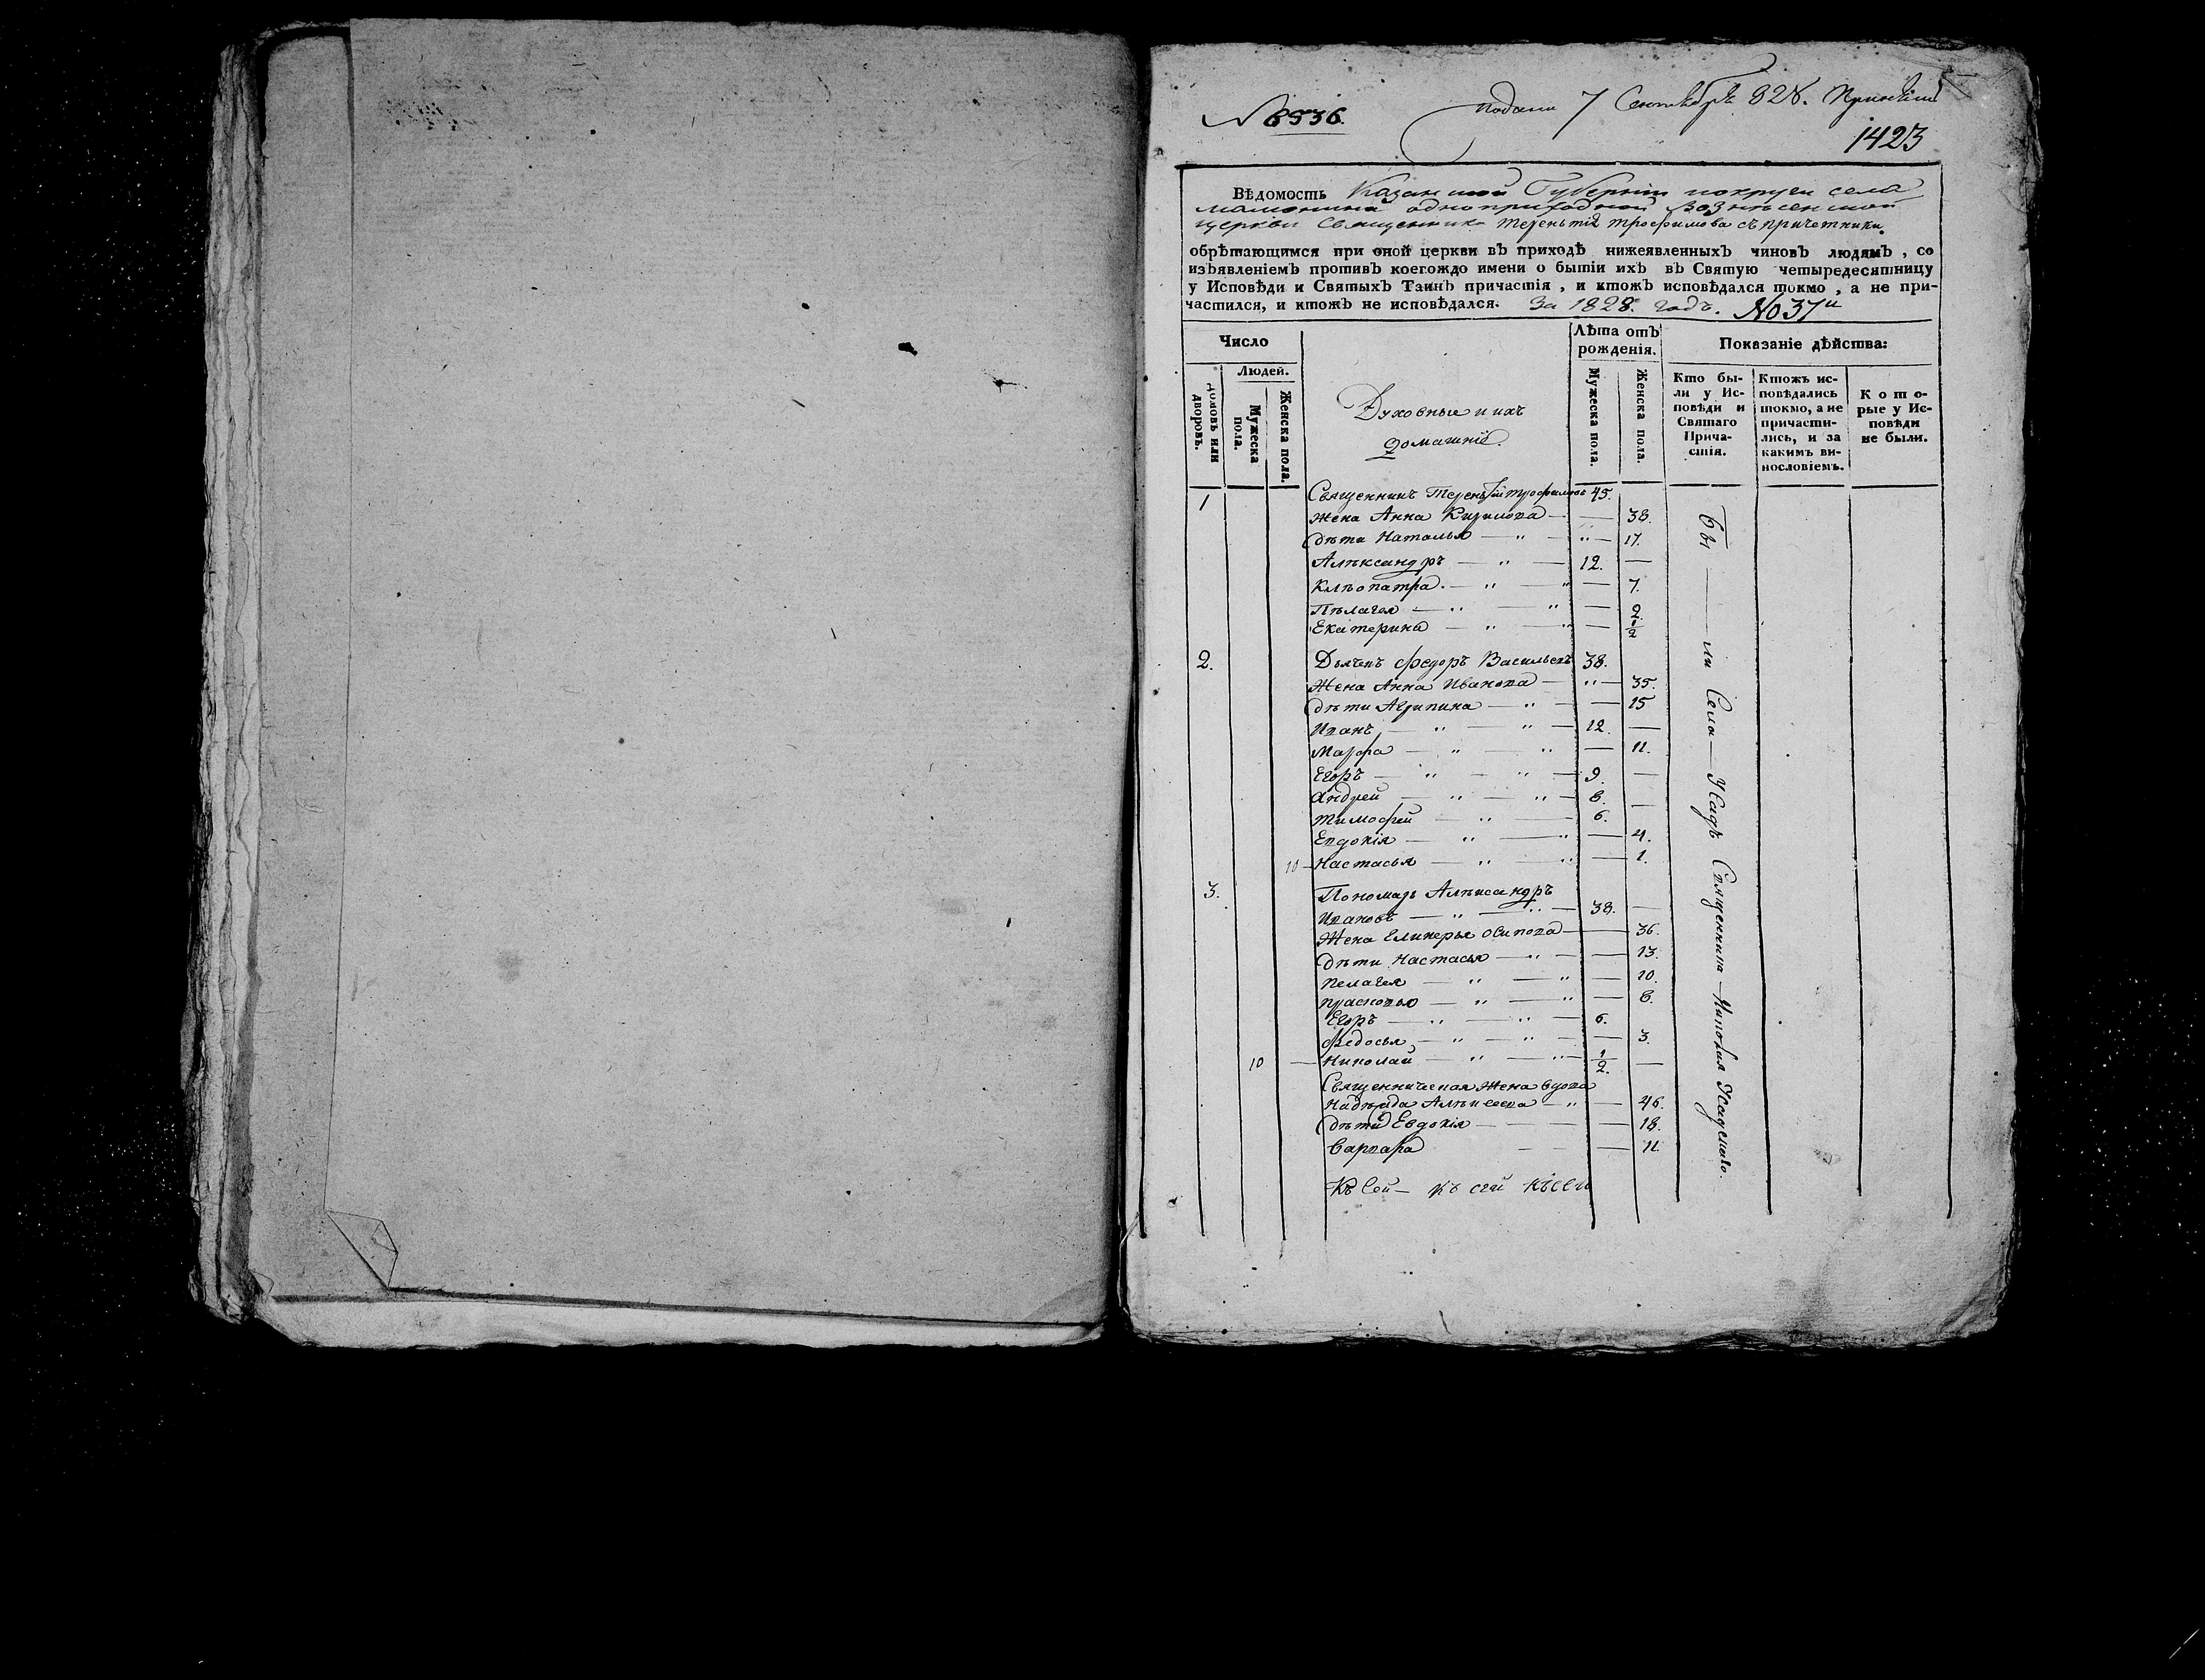 № 6536.
подана 7 Сентября 828.
1423
Вѣдомость Казанской Губернїи и округи села
мамонина одноприходной Вознѣсенской
церкви Священника терентїя трофимова съ причетники
обрѣтающимся при оной церкви въ приходѣ нижеявленныхъ чиновъ людямъ, со
изъявленіемъ противъ коегождо имени о бытіи ихъ въ Святую четыредесятницу
у Исповѣди и Святыхъ Таинъ причастія, и ктожъ исповѣдался токмо, а не при-
частился, и ктожъ не исповѣдался. За 1828. годъ. №37й
Число
Лѣта отъ
рожденія.
Показаніе дѣйства:
Людей.
домовъ или
дворовъ.
Мужеска
пола.
Женска пола.
Духовные и ихъ
домашнїе
Мужеска пола.
Женска пола.
Кто бы-
ли у Ис-
повѣди и
Святаго
Прича-
стія.
Ктожъ ис-
повѣдались
токмо, а не
причасти-
лись, и за
какимъ ви-
нословіемъ.
Кото-
рые у Ис-
повѣди
не были.
1 Священникъ Терентїй трофимовъ 45.
Жена Анна Кирилова — 38.
дѣти Наталья — 17.
Алѣксандръ — 12. —
Клѣопатра — 7.
Пѣлагея — 2.
Екатерина — 1/2
2. Дьячекъ Федоръ Васильевъ 38.
Жена Анна Иванова — 35.
дѣти Агрипина — 15
Иванъ — 12. —
Марфа — 11.
Егоръ — 9. —
Андрей — 8. —
тимофей — 6.
Евдокїя — 4.
10 — Настасья — 1.
3. Пономарь Алѣксандръ
Ивановъ — 38. —
Жена Еликерья Осипова — 36.
дѣти Настасья — 13.
пелагея — 10.
прасковья — 8.
Егоръ — 6.
Федосья — 3.
10 — Николай — 1/2. —
Священническая Жена вдова
Надѣжда Алѣксеева — 46.
дѣти Евдокїя — 18.
Варвара — 11.
Бы — ли Села — Усадъ Священника — Николая Усадскаго.
Къ сей — къ сей къ сей